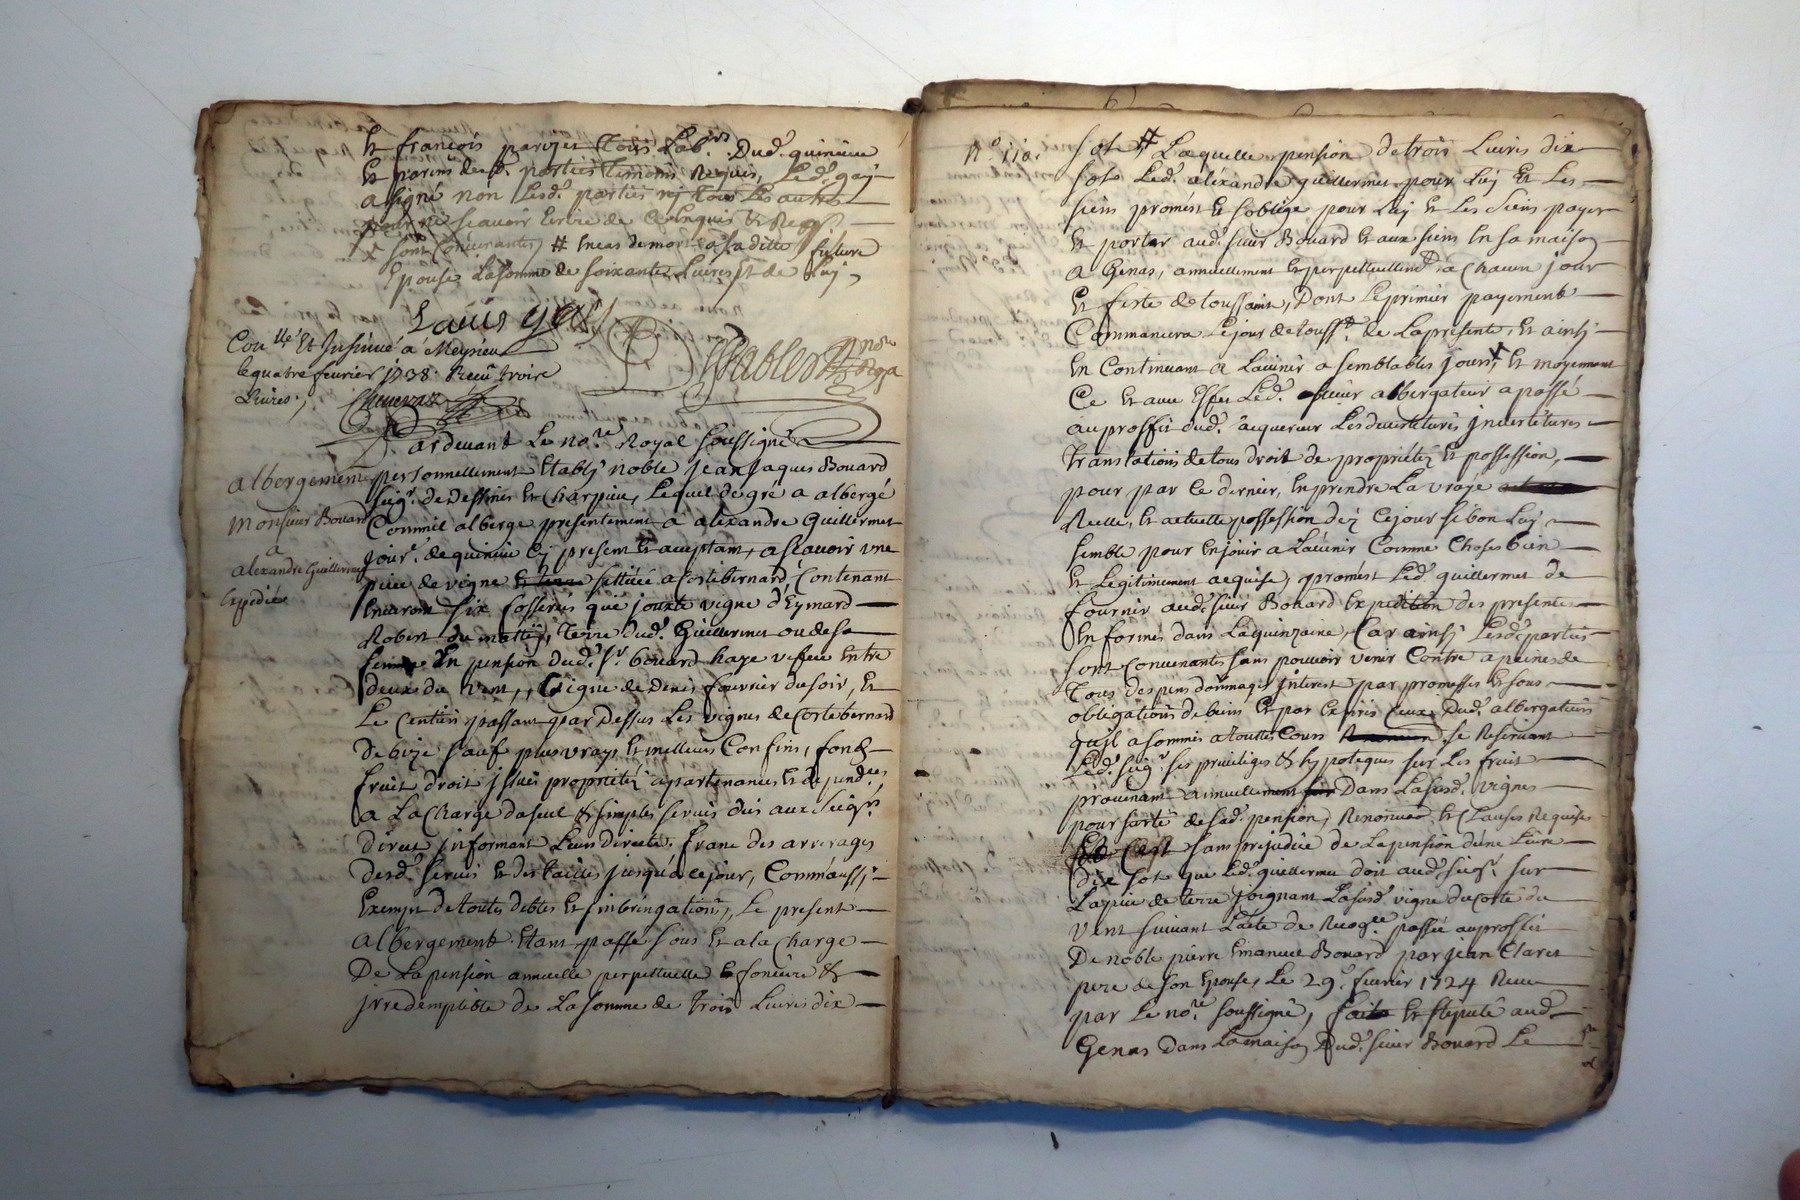 Et francois parozet tous Lab.rs Dud. quinieux
Et parins desd. parties temoins Requis, Led. gay
a signé non Lesd. parties ny tous Les autres
pour ne scavoir Ecrire de ce Enquis & Reqs.
x sont Convenantes # En cas de mort à sa ditte future
Epouse La somme de soixantes Livres Et de Luy
Louis gay
Con.llé Et Insinué à Meysieu
le quatre fevrier 1738. Receu troize
Livres.
Chenevaz
Pardevant Le no.re Royal soussigné
personnellement Etably noble Jean Jaques Bouard
albergement
Monsieur Bouard
a
alexandre Guillermet
Expédié
seig.r de Dessines Et Charpieu, Lequel de gré a albergé
Comme il alberge presentement à alexandre Guillermet
Jour.r de quinieu Cy present Et aceptant, a scavoir une
piece de vigne sittuée a Coste bernard, Contenant
Environ six fosserés qui jouxte vigne d'Eymard
Robert du mattin, Terre dud. Guillermet ou de sa
femme En pension dud. s.r bouard haye Entre
deux du vent, vigne de Denis fournier du soir, Et
Le Centier passant par Dessus Les vignes de Coste bernard
De bize sauf plus vrays Et meilleurs Confins, fondz
fruit droit issües proprietéz apartenances Et dependces
a La Charge du seul & simples servis dus aux seigrs
Direct informant Leurs directe. franc des arrerages
desd. servis Et des tailles jusqu'à ce jour, Comm'aussi
Exempt de toutes debtes Et, Le present
albergement Etant passé sous Et a la Charge
De La pension annuelle perpettuelle fonciere &
irredemptible de La somme de trois Livres dix
N.o 110.
sols # Laquelle pension de trois Livres dix
sols Led. aléxandre guillermet pour Luy Et Les
siens promet Et s'oblige pour Luy Et Les siens payer
Et porter aud. sieur Bouard Et aux siens En sa maison
a Genas, annuellement Et perpettuellemt à chacun jour
Et feste de toussaint, Dont Le premier payement
Commancera Le jour de touss.t de La présente, Et ainsy
En Continuant a L'avenir a semblables jours, Et moyennant
Ce Et avec Effet Led. sieur albergateur a passé
au proffit dud. acquereur Les devestitures investitures
translations de tous droit de propriétéz Et possession,
pour par Ce dernier, En prendre La vraye
Reelle, Et actuelle possession dez ce jour si bon Luy
semble pour En jouir a L'avenir Comme Chose bien
Et Legitimement acquise, promet Led. guillermet de
fournir aud. sieur Bouard Expedition des presentes
En formes dans La quinzaine, Car ainsy Lesd. parties
sont Convenantes sans pouvoir venir Contre a peine de
Tous despens dommages interest par promesses Et sous
obligations de biens Et par Exprés ceux Dud. albergataire
qu'il a sommis a touttes Cours se Reservant
Led. seigr ses privileges & hypoteques sur Les fruit
provenant annuellement Dans La susd. vignes
pour sarté de sad. pension, Renonceé Et Clauses Requises
C'est sans prejudice de La pension d'une Livre
Dix sol que Led. guillermet doit aud. seigr. sur
La piece de terre joignant La susd. vigne du Costé du
vent suivant L'acte de Recog.ce passée au proffit
De noble pierre Emanuel Bouard par jean Claret
pere de son Epouse, Le 29.e fevrier 1724 Receu
par Le no.re soussigné, fait Et stipulé aud.
Genas Dans La maison Dud. sieur Bouard Le